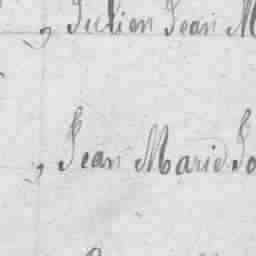 , Julien Jean M
, Jean Marie Jo